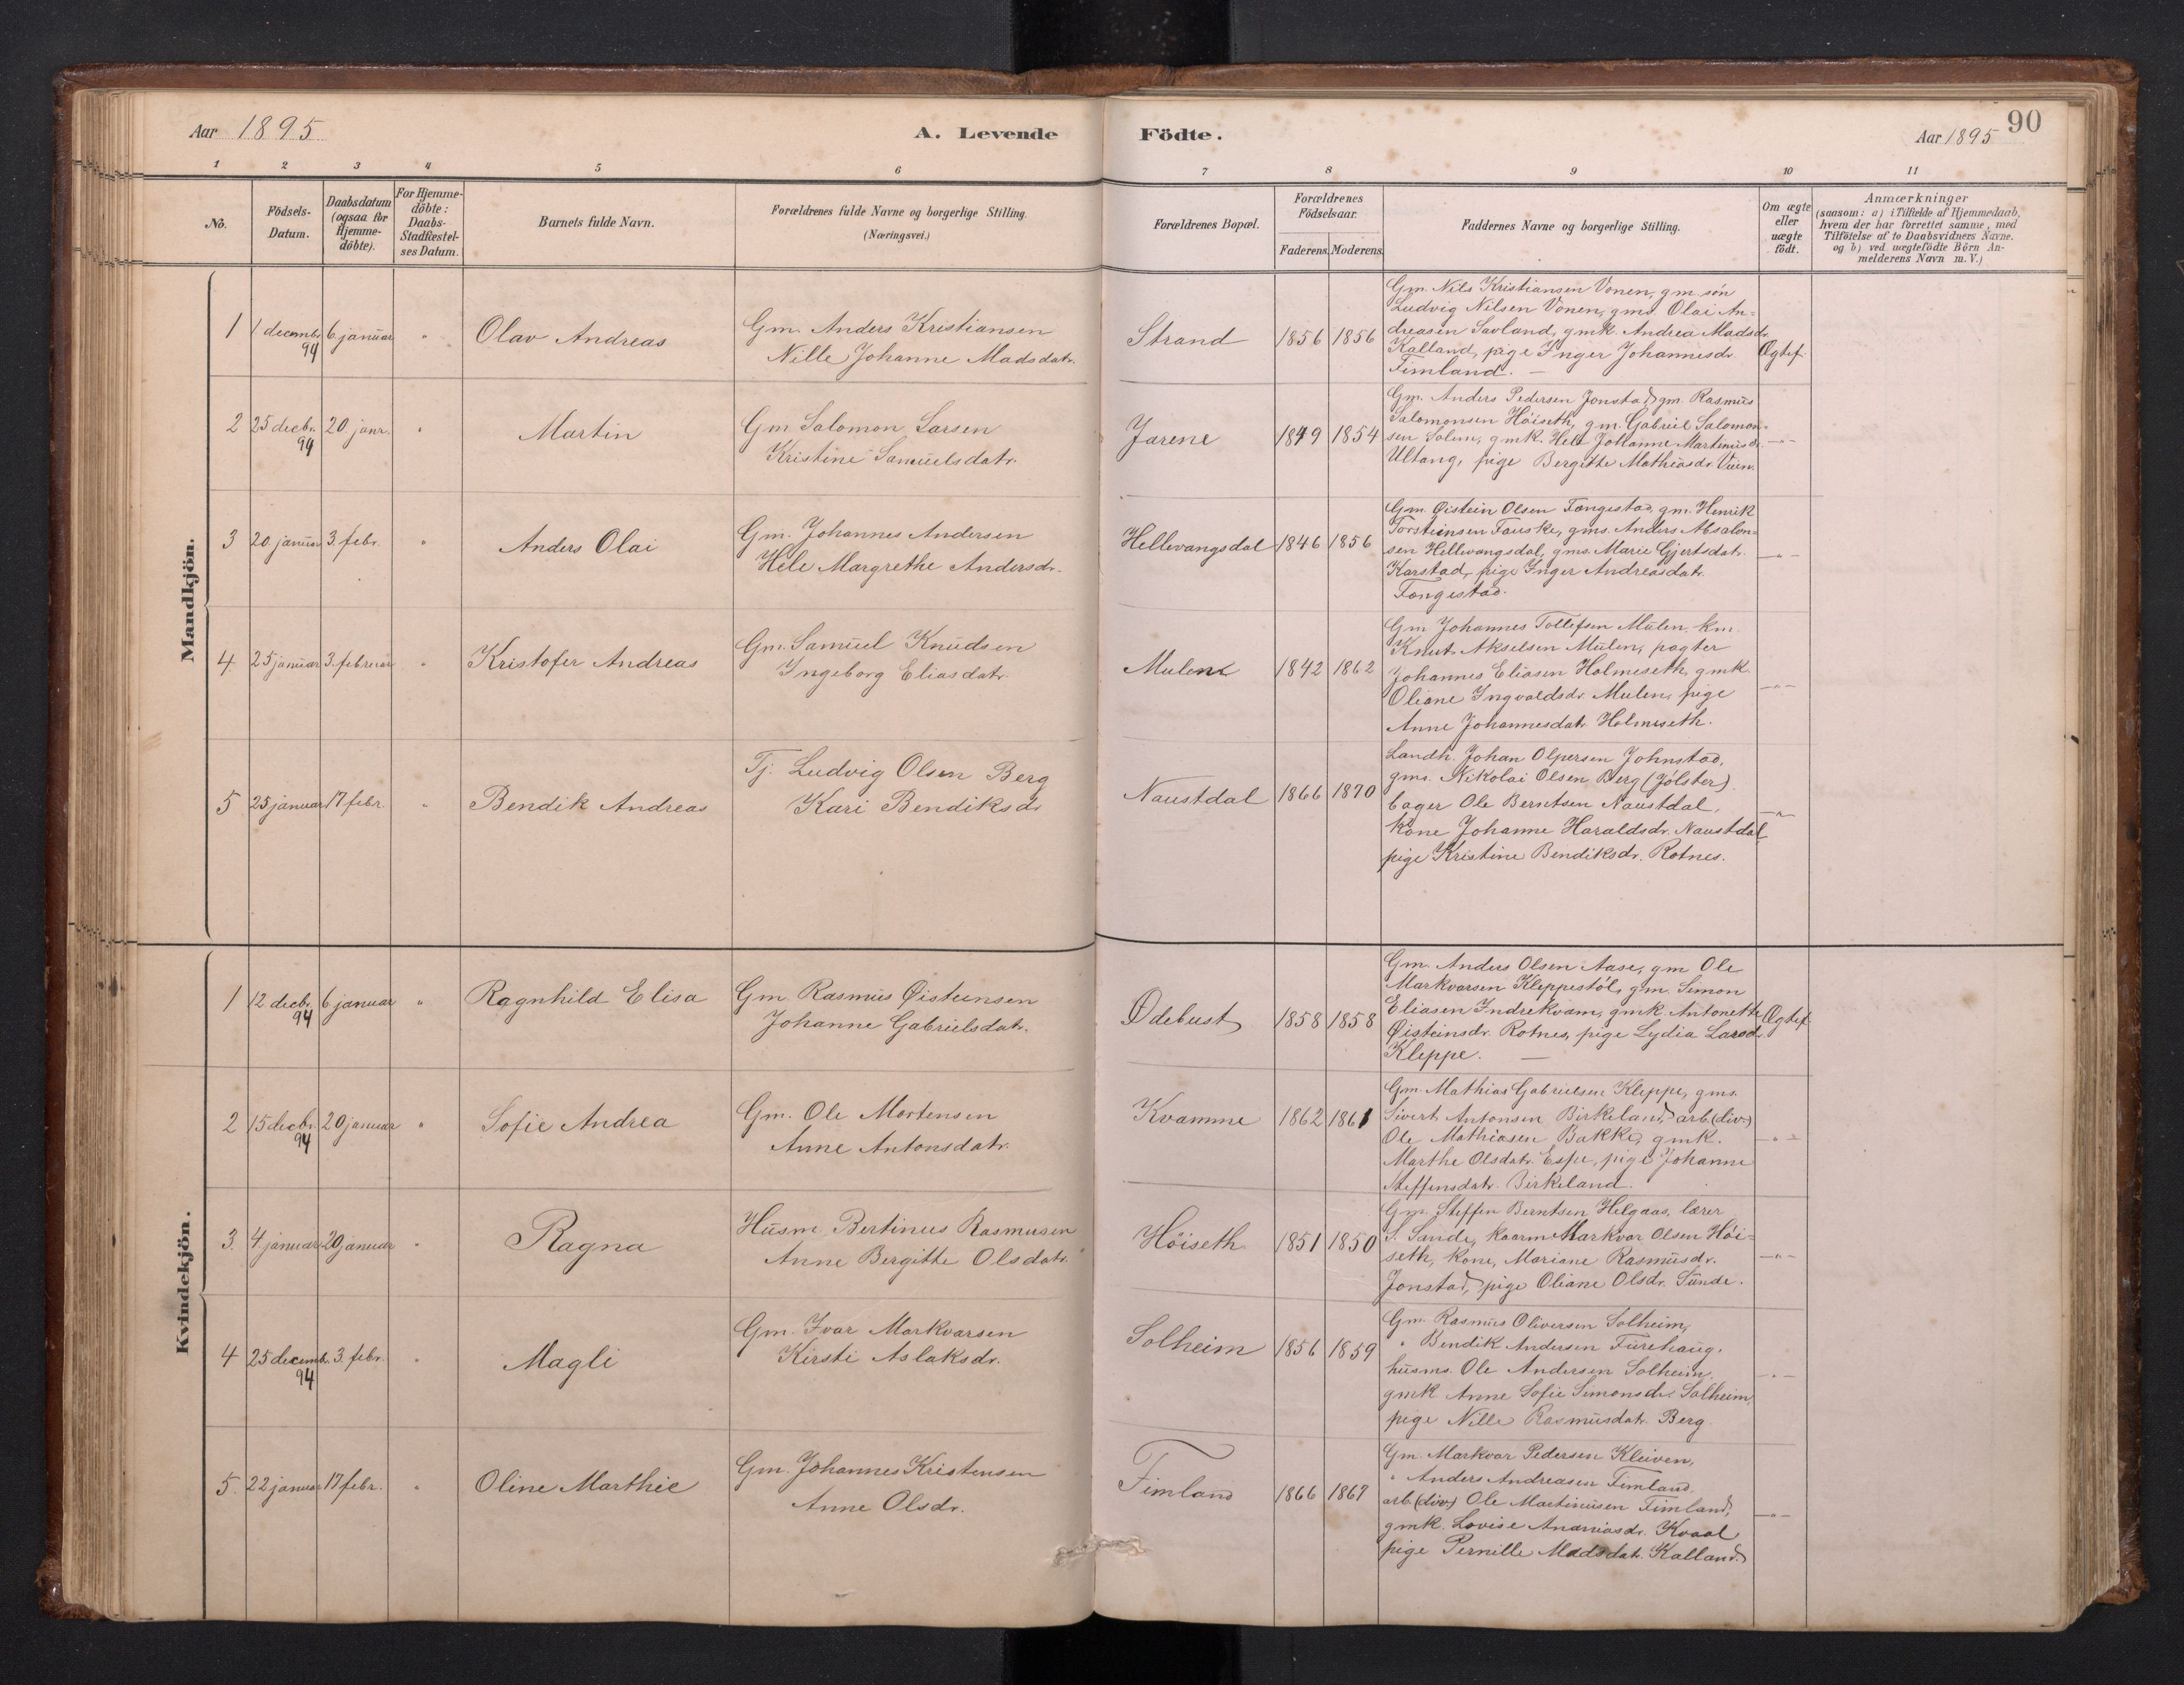 Aar 1895
A. Levende
Födte.
Aar 1895
90
1 2 3 4 5 6 7 8 9 10 11
No.
Födsels-
Datum.
Daabsdatum
(ogsaa for
Hjemme-
döbte).
For Hjemme-
döbte:
Daabs-
Stadfæstel-
ses Datum.
Barnets fulde Navn.
Forældrenes fulde Navne og borgerlige Stilling.
(Næringsvei.)
Forældrenes Bopæl.
Forældrenes
Födselsaar.
Faderens. Moderens.
Faddernes Navne og borgerlige Stilling.
Om ægte
eller
uægte
födt.
Anmærkninger
(saasom: a) i Tilfælde af Hjemmedaab,
hvem der har forrettet samme, med
Tilföielse af to Daabsvidners Navne.
og b) ved uægtefödte Börn An-
melderens Navn m. V.)
Mandkjön.
1 1 decembr. 94 6 januar " Olav Andreas
Gm. Anders Kristiansen
Nille Johanne Madsdatr.
Strand 1856 1856
Gm. Nils Kristiansen Vonen, gm. søn
Ludvig Nilsen Vonen, gms. Olai An-
dreasen Savland, gmk. Andrea Madsdr.
Kalland, pige Inger Johannesdr.
Timland. —
Ægtef.
2 25 decbr. 94 20. janr. " Martin
Gm Salomon Larsen
Kristine Samuelsdatr.
Jarene 1849 1854
Gm. Anders Pedersen Jonstad, gm. Rasmus
Salomonsen Höiseth, gm. Gabriel Salomon-
sen Solem, gmk. Hele Johanne Martinusdr.
Ultang, pige Bergitte Mathiasdr. Vien.
—"—
3 20. januar 3. febr. " Anders Olai
Gm. Johannes Andersen
Hele Margrethe Andersdr.
Hellevangsdal 1846 1856
Gm. Øistein Olsen Fongestad, gm. Henrik
Torsteinsen Fauske, gms. Anders Absalon-
sen Hellevangsdal, gms. Marie Gjertsdatr.
Karstad, pige Inger Andreasdatr.
Fongestad.
—"—
4. 25 januar 3. februar " Kristofer Andreas
Gm. Samuel Knudsen
Ingeborg Eliasdatr.
Mulen 1842 1862
Gm Johannes Tollefsen Mulen, km.
Knut Akselsen Mulen, pagter
Johannes Eliasen Holmeseth, gmk.
Oliane Ingvaldsdr. Mulen, pige
Anne Johannesdatr. Holmeseth.
—"—
5 25 januar 17 febr. " Bendik Andreas
Tj. Ludvig Olsen Berg
Kari Bendiksdr
Naustdal 1866 1870
Landh. Johan Olpersen Johnstad,
gms. Nikolai Olsen Berg (Jölster)
bager Ole Berntsen Naustdal,
kone Johanne Haraldsdr. Naustdal,
pige Kristine Bendiksdr. Rotnes.
—"—
Kvindekjön.
1 12 decbr. 94 6 januar " Ragnhild Elisa
Gm. Rasmus Øisteinsen
Johanne Gabrielsdatr.
Ødebust 1858 1858
Gm. Anders Olsen Aase, gm Ole
Markvarsen Kleppestöl, gm. Simon
Eliasen Indrekvam, gmk. Antonette
Øisteinsdr. Rotnes, pige Lydia Larsdr.
Kleppe. —
Ægtef.
2 15 decbr. 94 20 januar " Sofie Andrea
Gm. Ole Mortensen
Anne Antonsdatr.
Kvamme 1862 1861
Gm. Mathias Gabrielsen Kleppe, gms.
Sivert Antonsen Birkeland, arb. (div.)
Ole Mathiasen Bakke, gmk.
Marthe Olsdatr. Espe, pige Johanne
Steffensdatr. Birkeland.
—"—
3. 4. januar 20 januar " Ragna
Husm. Bertinus Rasmusen
Anne Bergitte Olsdatr.
Höiseth 1851 1850
Gm. Steffen Berntsen Helgaas, lærer
S. Sande, kaarm Markvar Olsen Höi-
seth, kone, Mariane Rasmusdr.
Jonstad, pige Oliane Olsdr. Sunde.
—"—
4 25 decemb. 94 3. febr. " Magli
Gm. Ivar Markvarsen
Kirsti Aslaksdr.
Solheim 1856 1859
Gm. Rasmus Oliversen Solheim,
" Bendik Andersen Furehaug.
husms. Ole Andersen Solheim,
gmk Anne Sofie Simonsdr. Solheim,
pige Nille Rasmusdatr. Berg.
—"—
5. 22 januar 17 febr. " Oline Marthie
Gm. Johannes Kristensen
Anne Olsdr.
Timland 1866 1867
Gm. Markvar Pedersen Kleiven,
" Anders Andreasen Timland,
arb. (div.) Ole Martinusen Timland,
gmk. Lovise Ananiasdr. Kvaal
pige Pernille Madsdatr. Kalland.
—"—